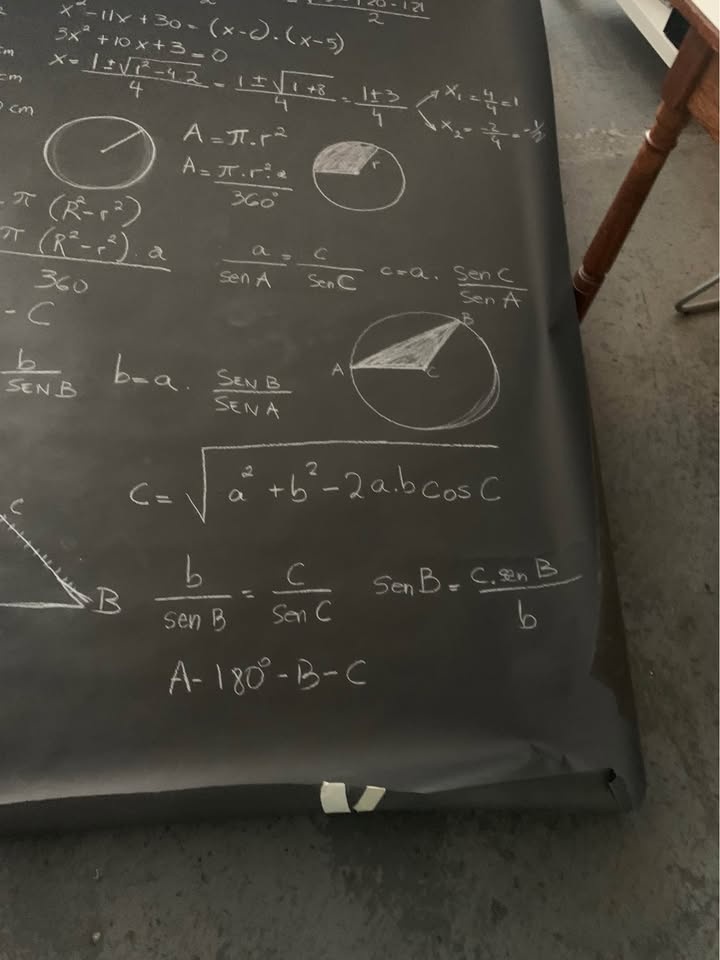 2
x² - 11x + 30 = (x-6) · (x-5)
3x² + 10x + 3 = 0
cm
x = 1 ± √1² - 4.2 / 4 = 1 ± √1 + 8 / 4 = 1 ± 3 / 4
x₁ = 4/4 = 1
x₂ = -2/4 = -1/2
cm
cm
A = π · r²
A = π · r² · a / 360°
r
π (R² - r²)
π (R² - r²) · a / 360
a / sen A = c / sen C
c = a · sen C / sen A
- C
b / SEN B
b = a · SEN B / SEN A
A B C
C = √ a² + b² - 2 a.b cos C
C
B
b / sen B = C / sen C
sen B = c. sen B / b
A - 180° - B - C